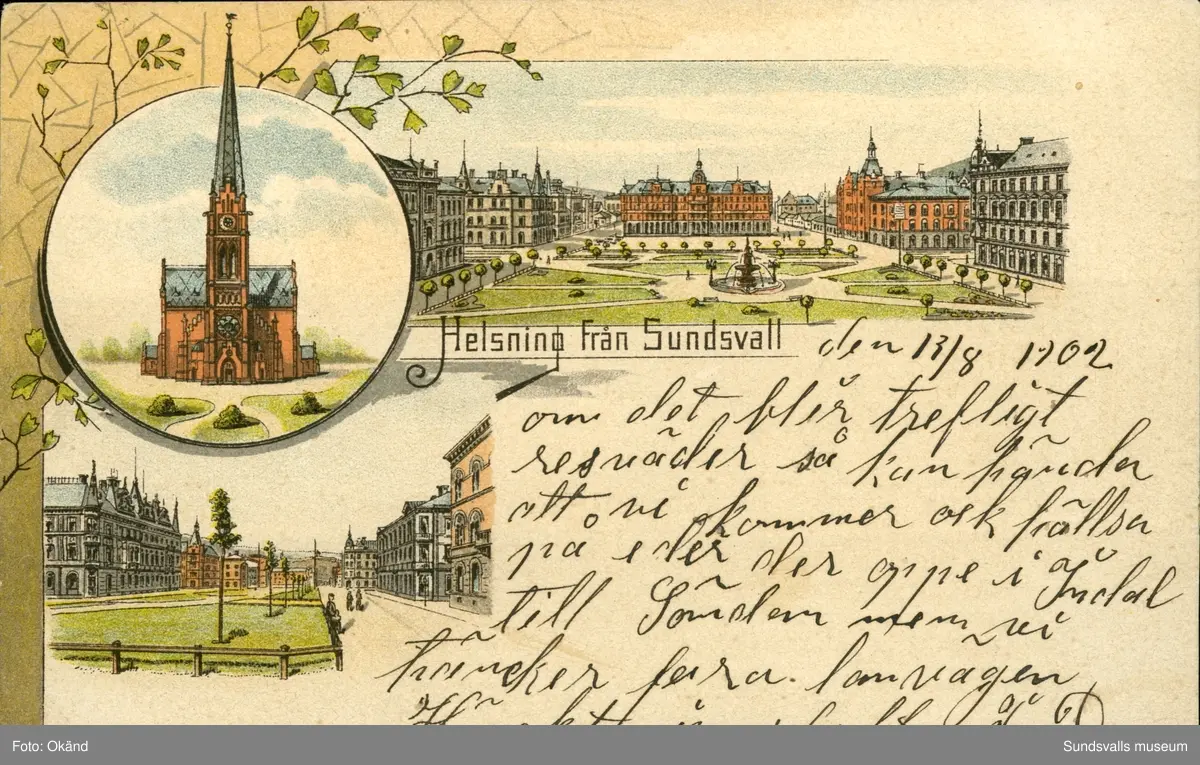 Helsning från Sundsvall
den 13/8 1902
om det blir trefligt
resväder så kan hända
att vi kommer ock hällsa
på eder der oppe i Indal
till Söndan men vi
täncker fara lanvägen
Foto: Okänd
Sundsvalls museum